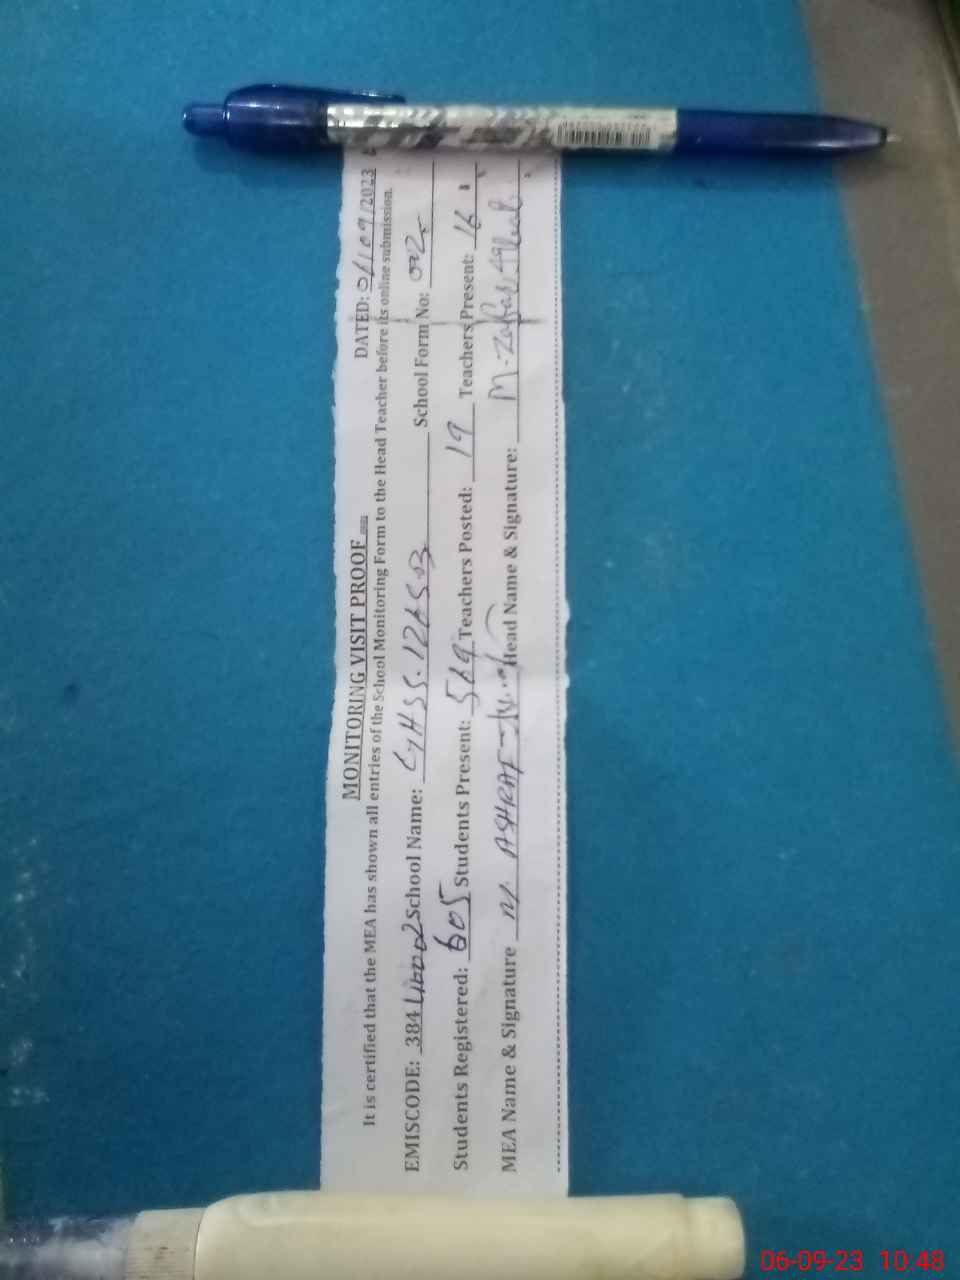 MONITORING VISIT PROOF
DATED: 06/09/2023
It is certified that the MEA has shown all entries of the School Monitoring Form to the Head Teacher before its online submission.
EMISCODE: 384 School Name: GHSS. 126 S.B School Form No: 002
Students Registered: 605 Students Present: 569 Teachers Posted: 19 Teachers Present: 16
MEA Name & Signature M ASHRAF Head Name & Signature: M-Zafar
06-09-23 10:48